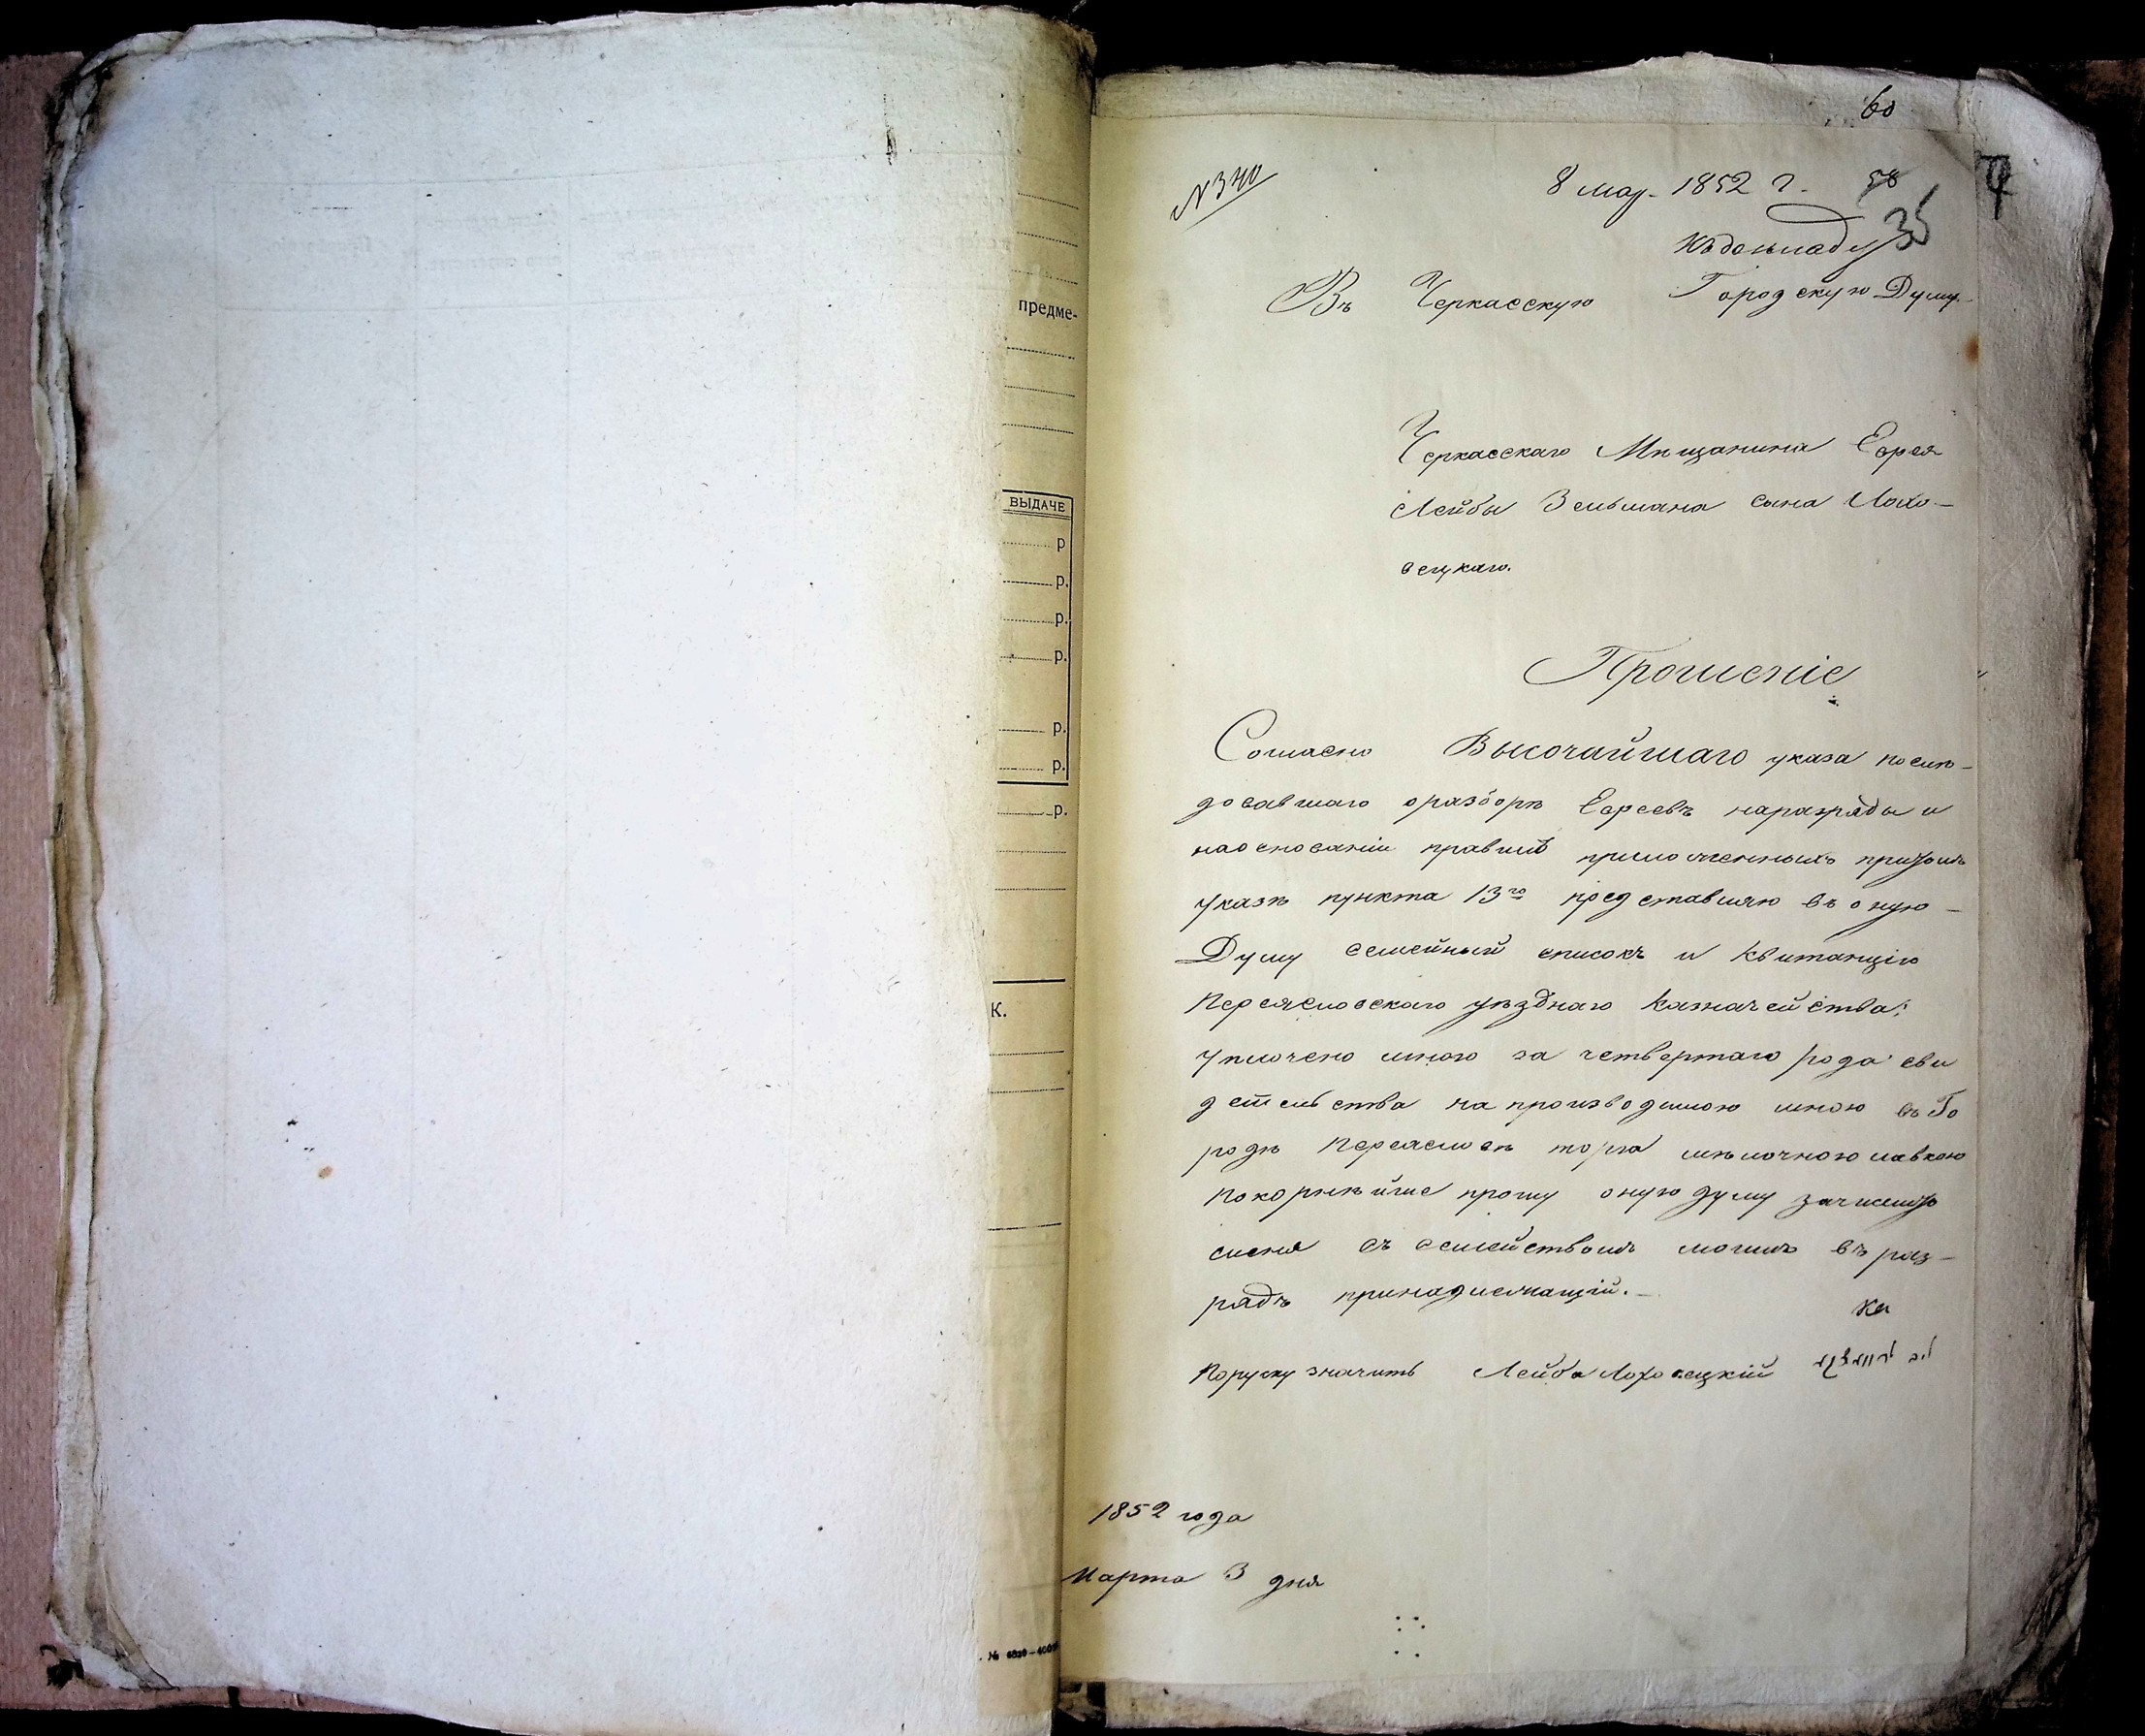 предме-
ВЫДАЧЕ
р
р.
р.
р.
р.
р.
р.
К.
60
N 340
8 мар. 1852 г. 58
35
Къ докладу
Въ Черкасскую Городскую Думу.
Черкасскаго Мѣщанина Еврея
Лейбы Зельмана сына Лохо-
вецкаго.
Прошеніе
Согласно Высочайшаго указа послѣ-
довавшаго о разборѣ Евреевъ на разряды и
на основаніи правилъ приложенныхъ при томъ
указѣ пункта 13го представляю въ оную
Думу семейный списокъ и квитанцію
Переясловскаго уѣзднаго Казначейства:
уплочено мною за четвертаго рода сви
детельства на производимою мною въ Го
родѣ Переясловѣ торга мѣлочною лавкою
покорнѣйше прошу оную думу зачислить
меня съ семействомъ моимъ въ раз-
рядъ принадлежащій.
Ка
По руску значить Лейба Лоховецкій
1852 года
Марта 3 дня